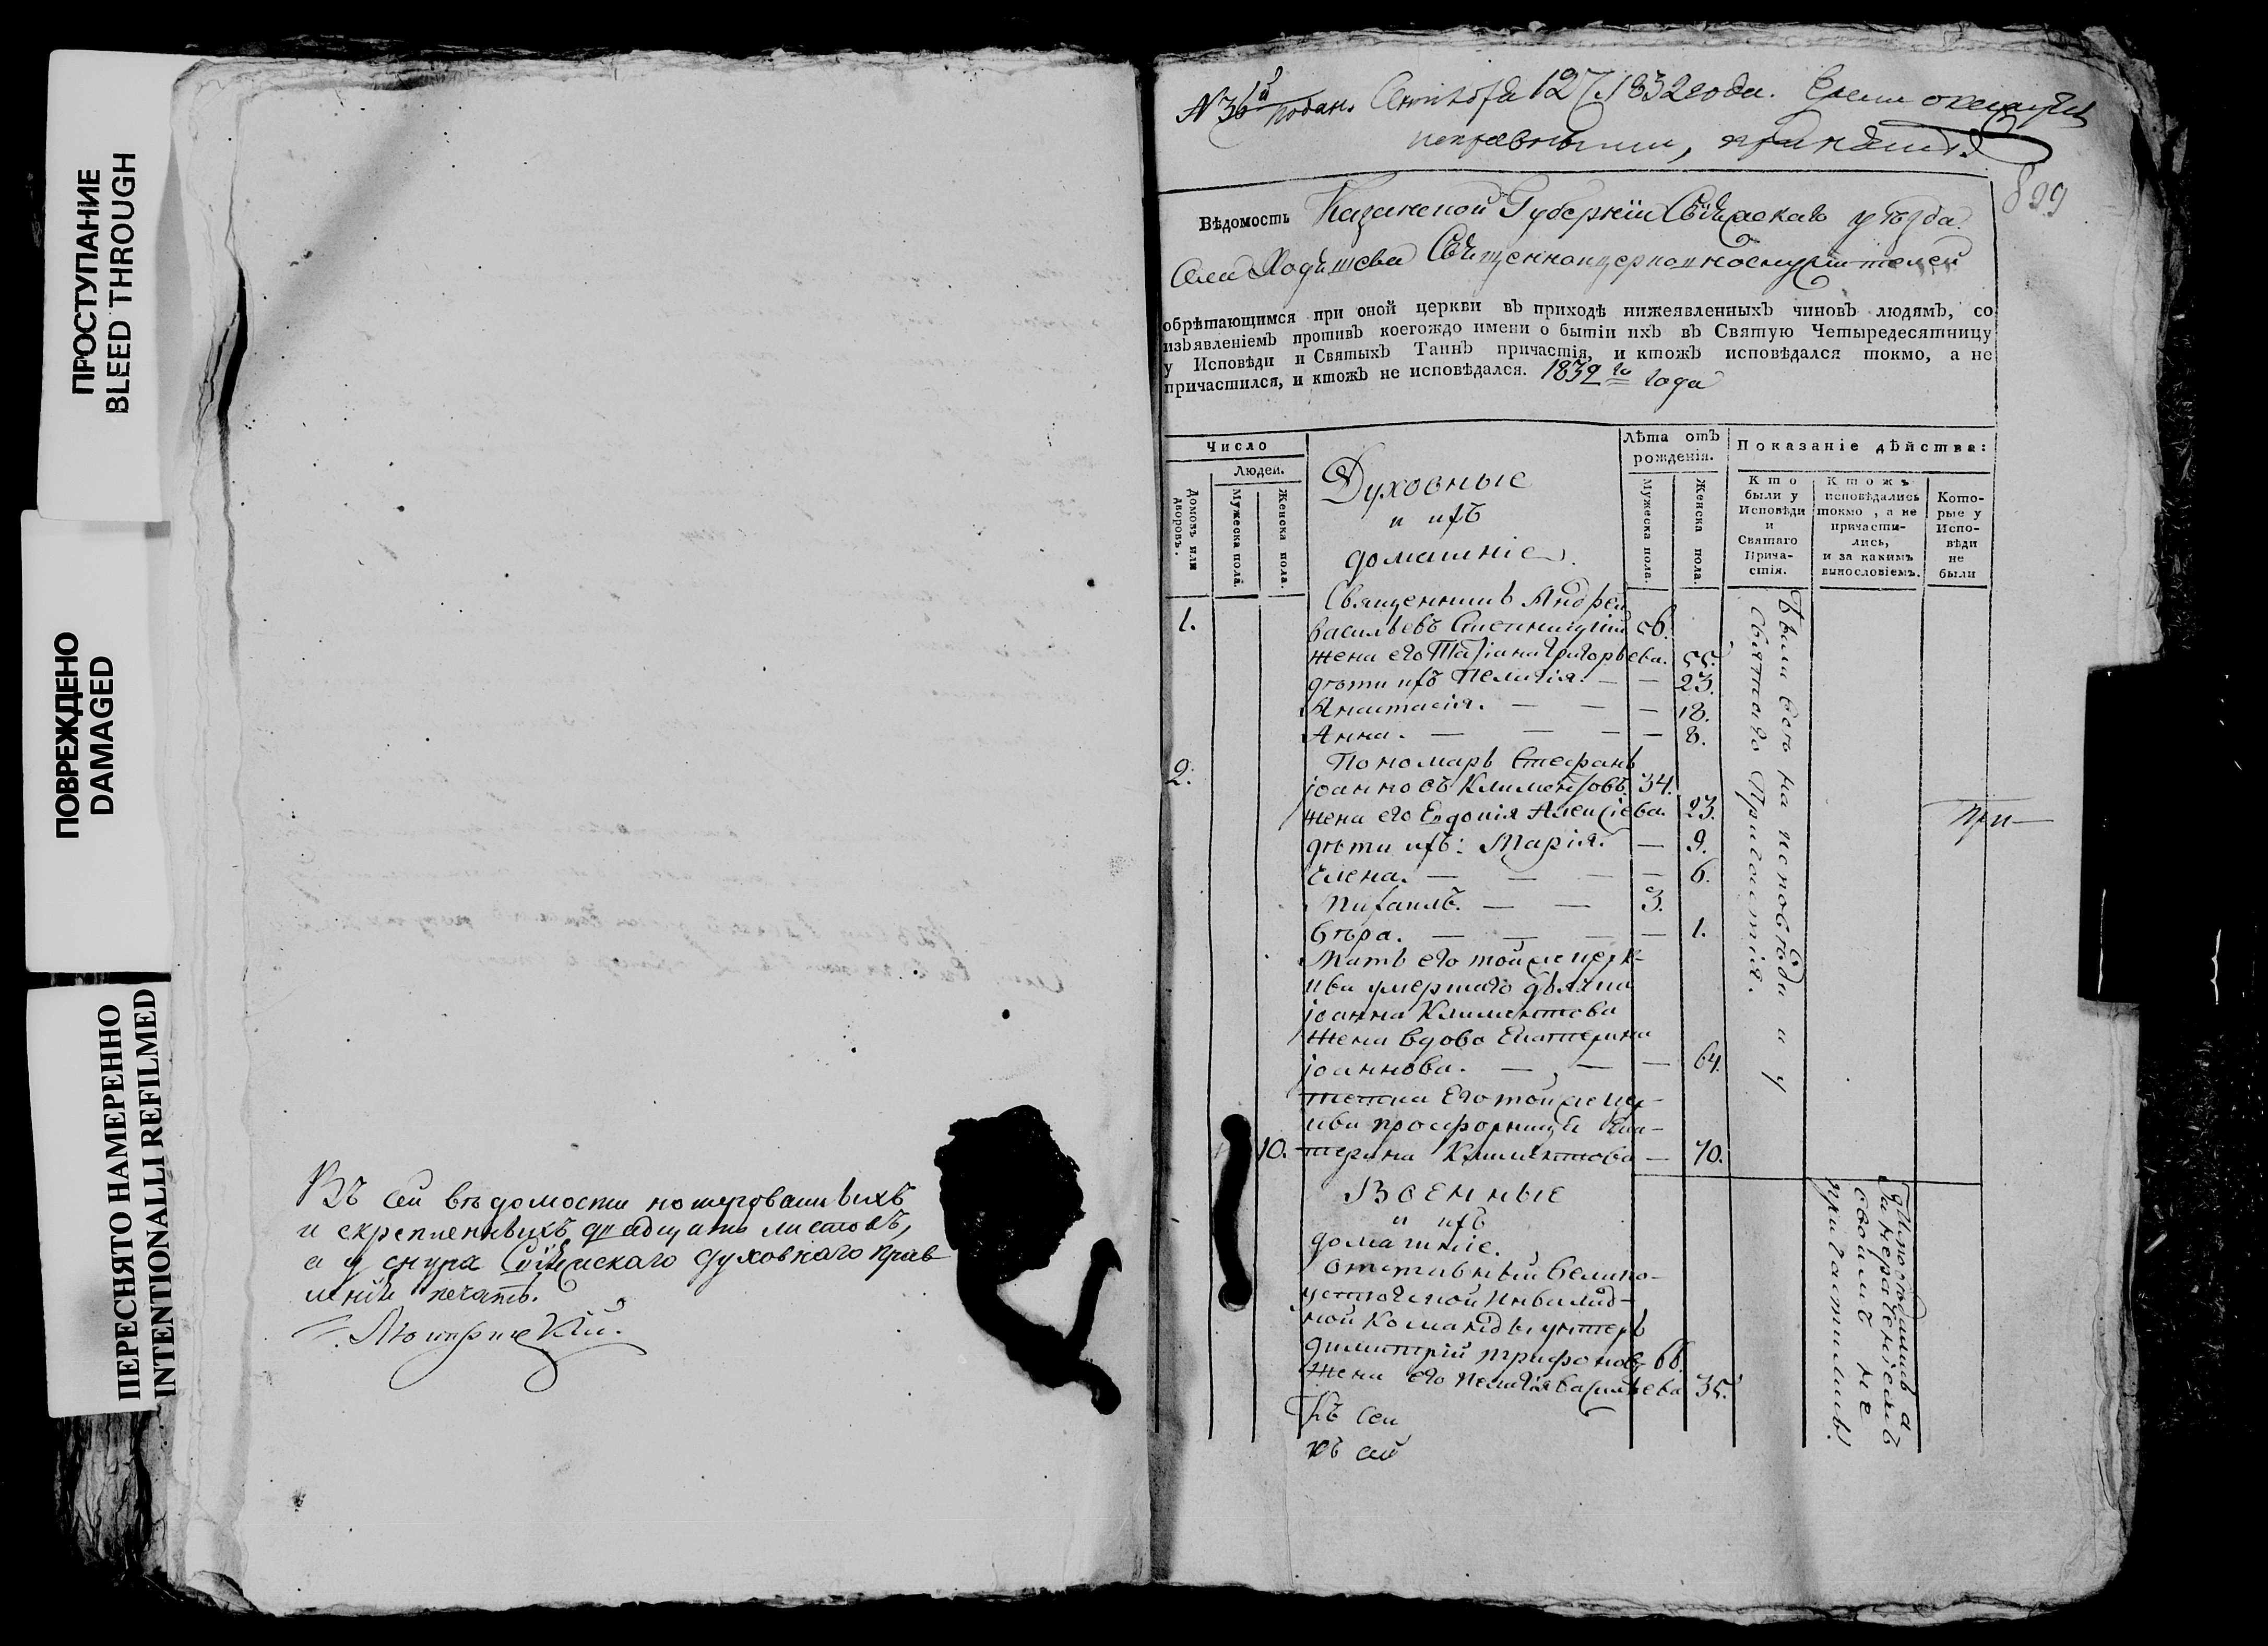 ПРОСТУПАНИЕ
BLEED THROUGH
ПОВРЕЖДЕНО
DAMAGED
ПЕРЕСНЯТО НАМЕРЕННО
INTENTIONALLI REFILMED
Въ сей вѣдомости
и скрепленныхъ двадцать листовъ,
а у снура духовнаго прав
ленія печать.
N 36й подан. 12 1832 года. Ежели окажутся
исправными, принять.
899
Вѣдомость Казанской Губерніи Свіяжскаго уѣзда
Села Ходяшева Священноцерковнослужителей
обрѣтающимся при оной церкви въ приходѣ нижеявленныхъ чиновъ людямъ, со
изъявленіемъ противъ коегождо имени о бытіи ихъ въ Святую Четыредесятницу
у Исповѣди и Святыхъ Таинъ причастія, и ктожъ исповѣдался токмо, а не
причастился, и ктожъ не исповѣдался. 1832 го года
Число
Людей.
Домовъ или дворовъ.
Мужеска пола.
Женска пола.
Духовные
и ихъ
домашніе.
Лѣта отъ
рожденія.
Мужеска пола.
Женска пола.
Показаніе дѣйства:
Кто
были у
Исповѣди
и
Святаго
Прича-
стія.
Ктожъ
исповѣдались
токмо, а не
причасти-
лись,
и за какимъ
винословіемъ.
Кото-
рые у
Испо-
вѣди
не
были
Священникъ Андрей
1. Васильевъ 56.
жена его Татіана Григорьева. 55.
дѣти ихъ Пелагія. — — 23.
Анастасія. — — — 18.
Анна. — — — — 8.
Пономарь Стефанъ
2. Іоанновъ Климентовъ. 34.
жена его Евдокія Алексіева. 23.
дѣти ихъ: Марія. — 9.
Елена. — — — — 6.
Михаилъ. — — 3.
Вѣра. — — — — 1.
Мать его той же церк-
ви умершаго дьячка
Іоанна Климентова
жена вдова Екатерина
Іоаннова. — — — 64.
тетка его той же цер-
кви просфорница Ека-
10. терина Климентова — 70.
Были всѣ на исповѣди и у
Святаго Причастія.
при—
Военные
и ихъ
домашніе.
Отставный Велико-
устюжской инвалид-
ной команды унтеръ
Димитрій Трифоновъ 66.
жена его Пелагія Васильева 35.
Исповѣдались а
за нерадѣніемъ
своимъ не
причастились.
Къ сей
къ сей